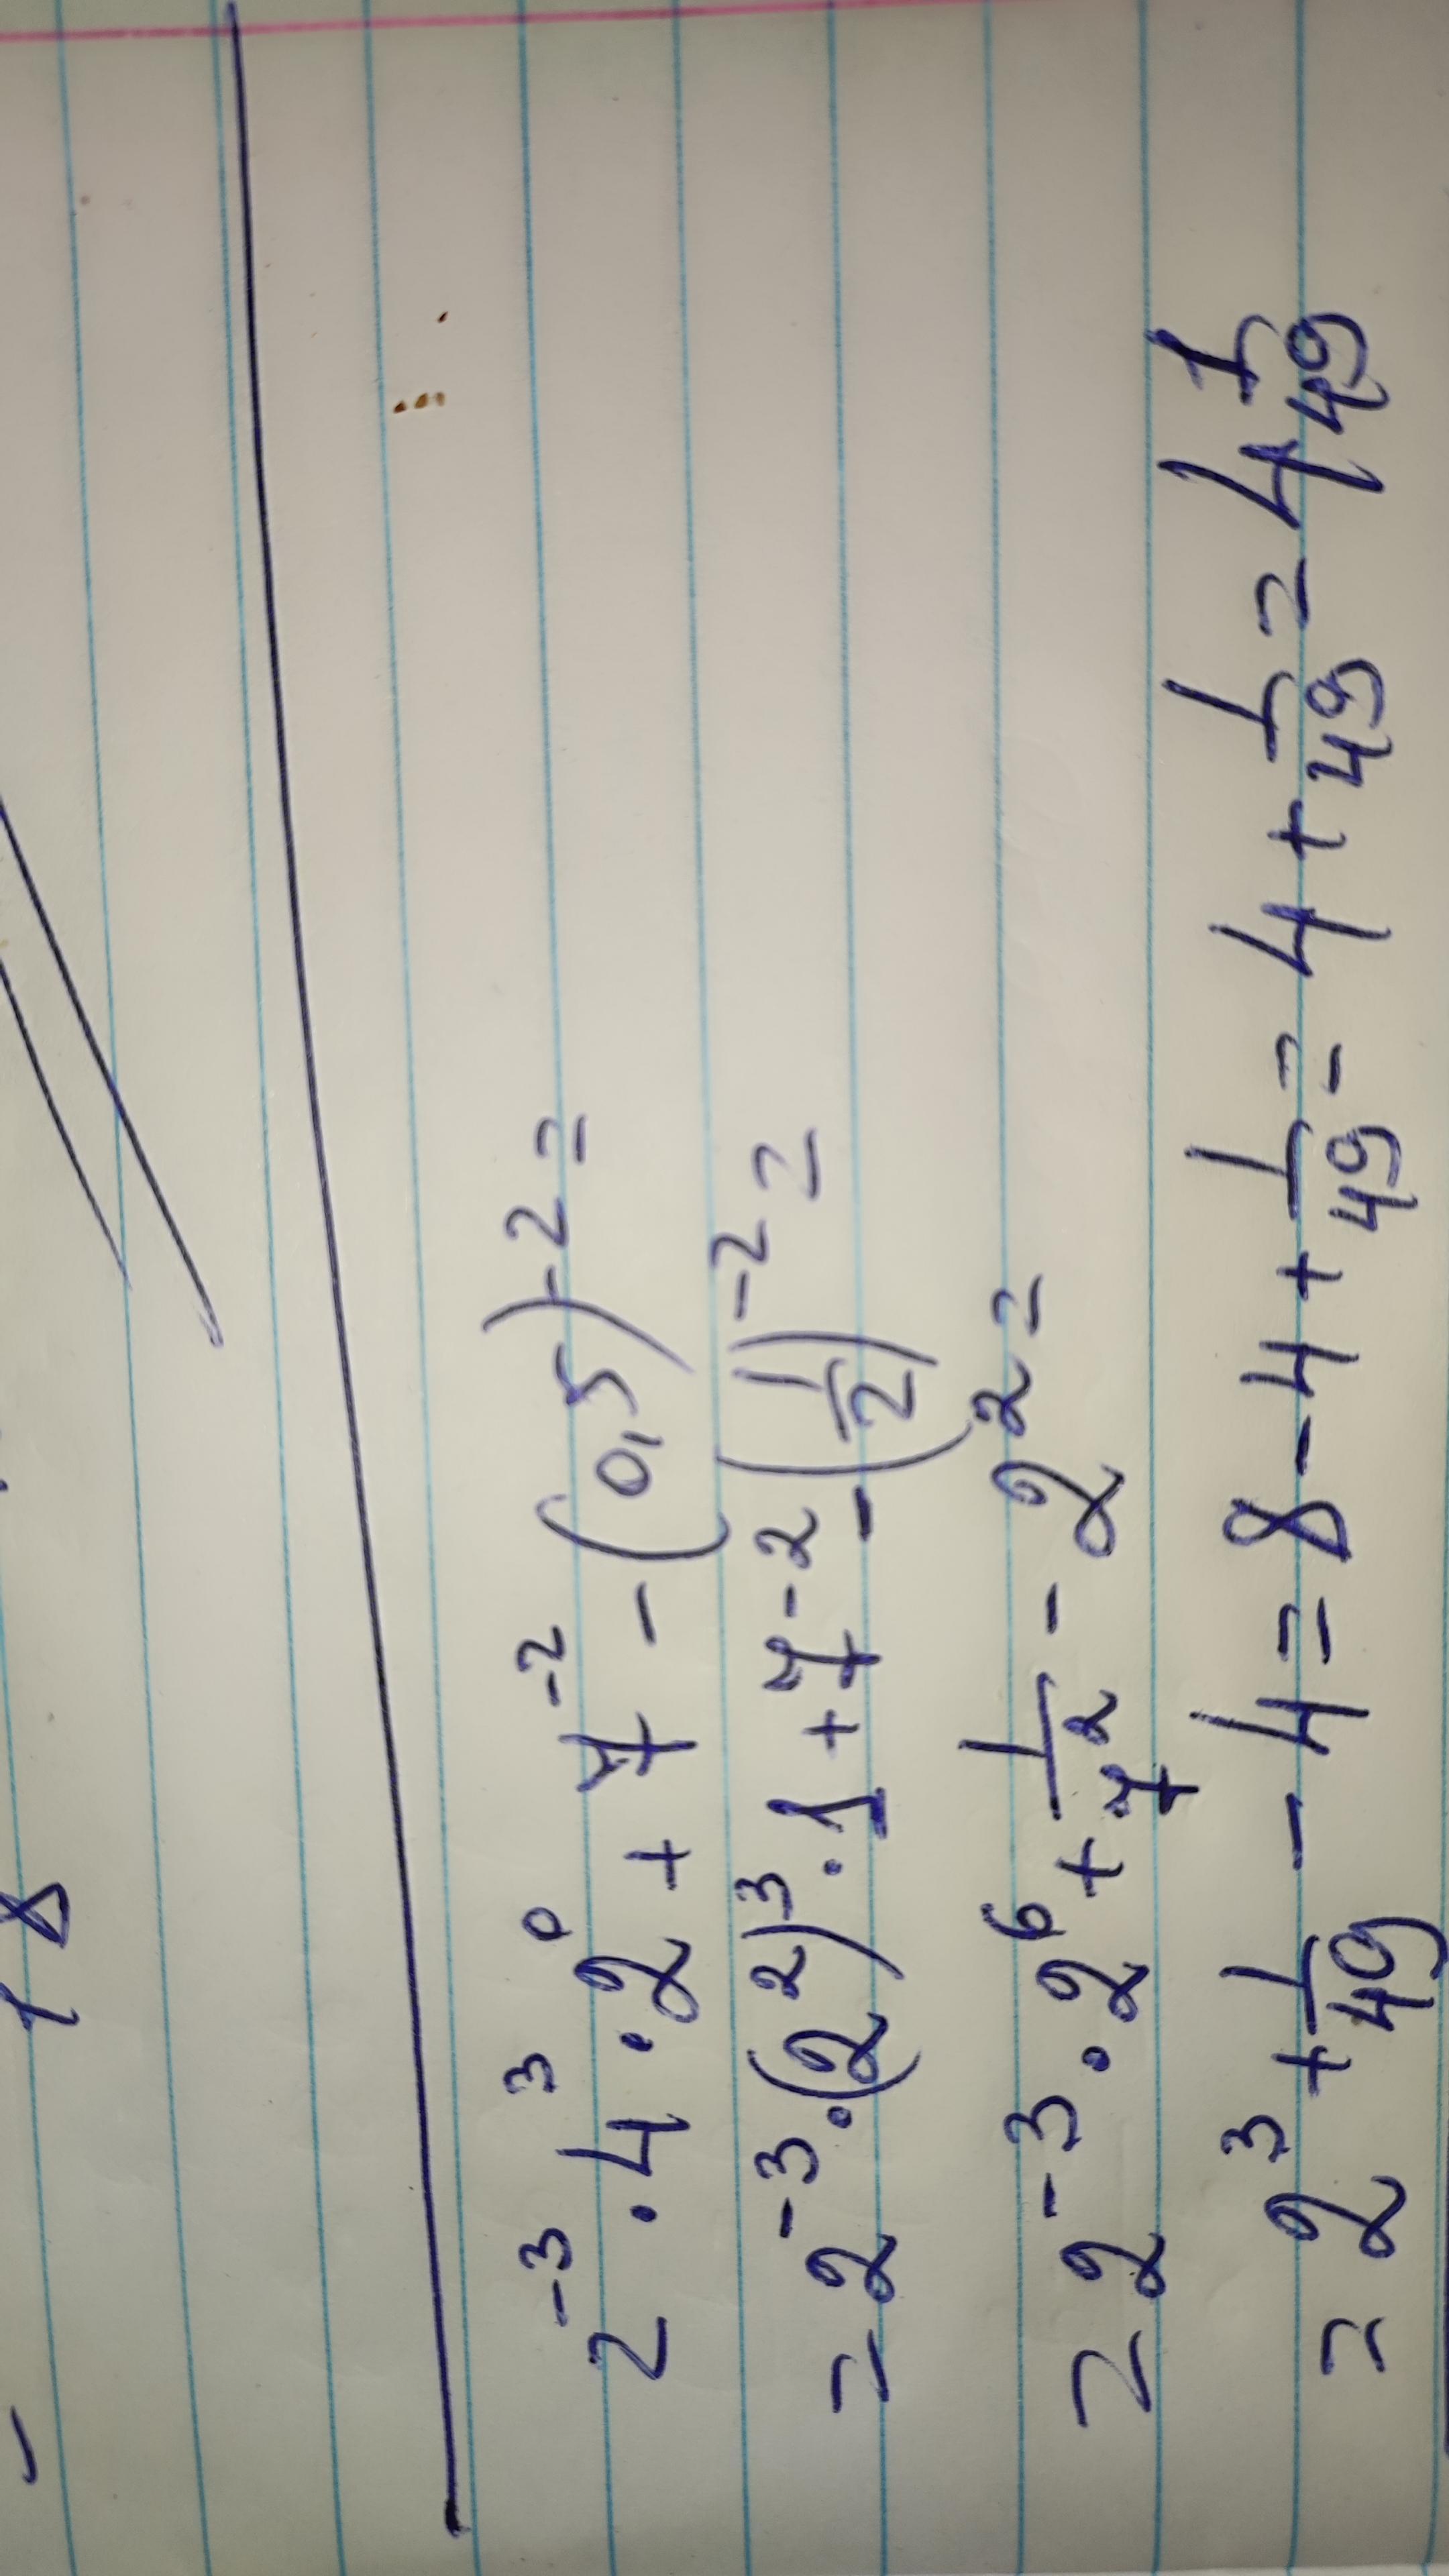 2⁻³ · 4³ · 2⁰ + 7⁻² - (0,5)⁻² =
= 2⁻³ · (2²)³ · 1 + 7⁻² - (1/2)⁻² =
= 2⁻³ · 2⁶ + 1/7² - 2² =
= 2³ + 1/49 - 4 = 8 - 4 + 1/49 = 4 + 1/49 = 4 1/49